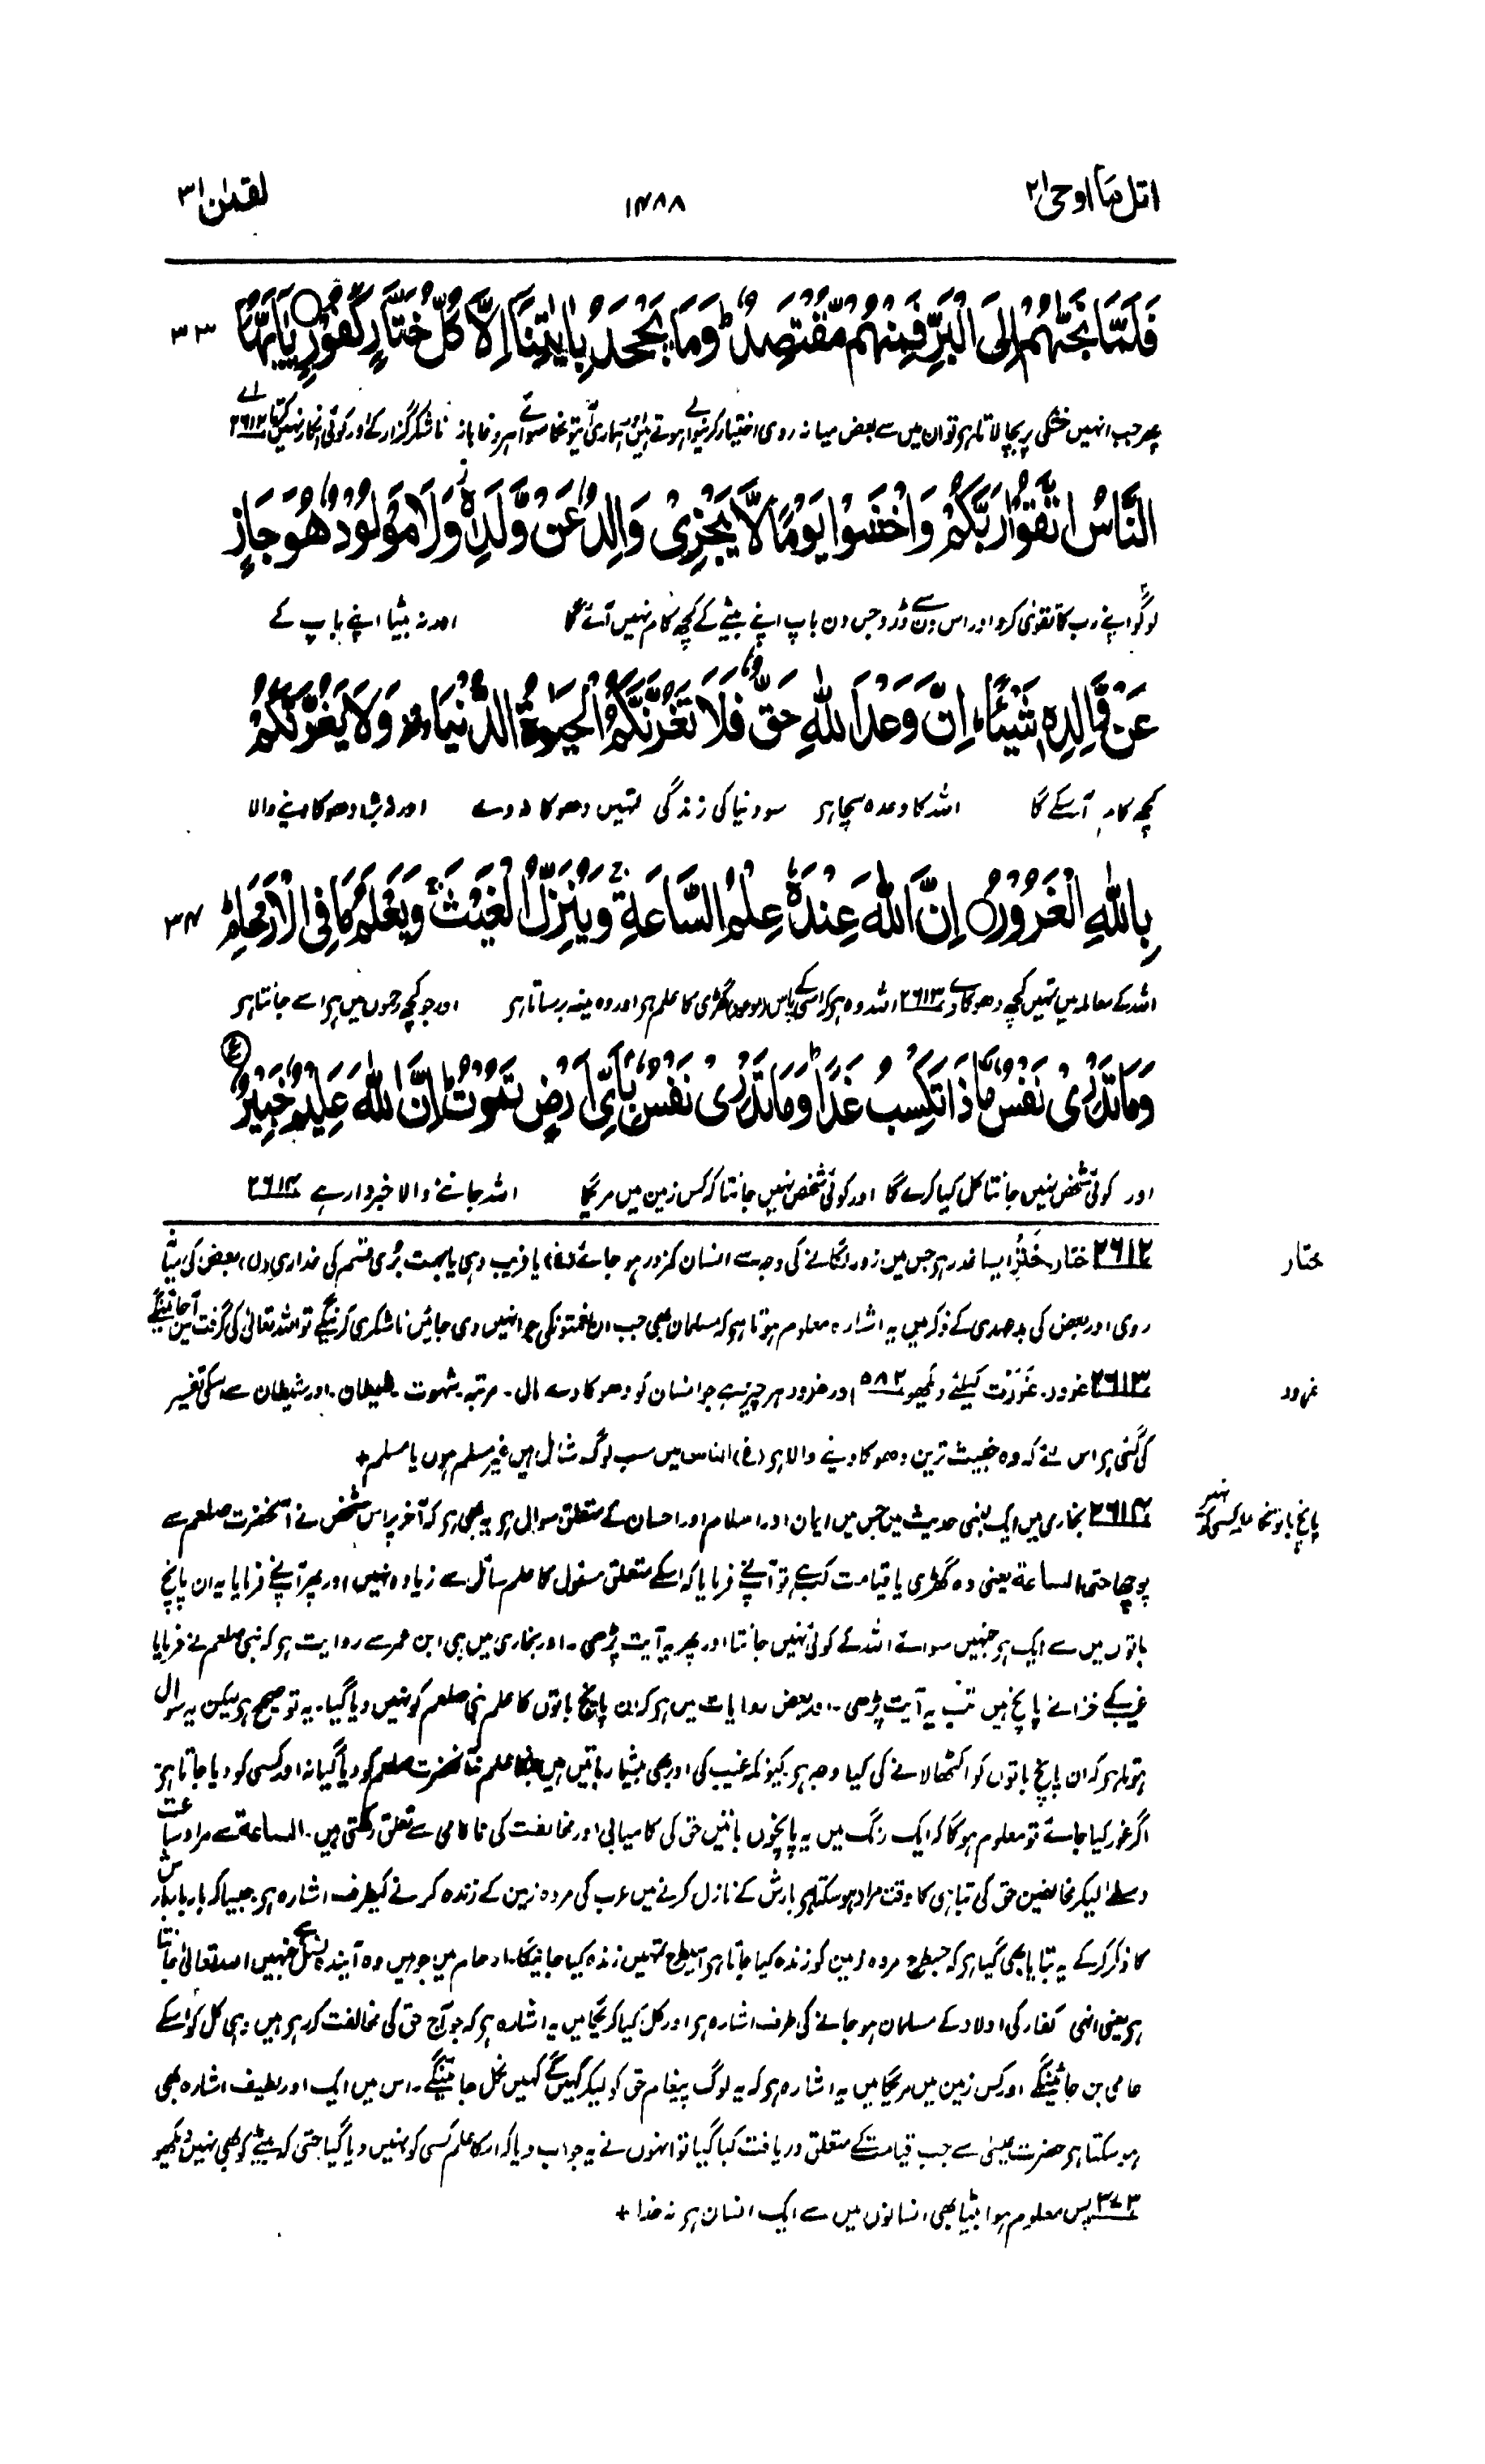 اتل ما اوحی ۲۱
۱۴۸۸
لقمٰن ۳۱
فَلَمَّا نَجّٰىهُمْ اِلَى الْبَرِّ فَمِنْهُمْ مُّقْتَصِدٌ ؕ وَمَا یَجْحَدُ بِاٰیٰتِنَاۤ اِلَّا كُلُّ خَتَّارٍ كَفُوْرٍ ○ یٰۤاَیُّهَا ۳۳
پھر جب انہیں خشکی پر بچا لاتا ہو تو ان میں سے بعض میانہ روی اختیار کرنیوالے ہوتے ہیں اور ہماری آیتونکا سوائے ہر دغا باز ناشکر گزار کے اور کوئی انکار نہیں کرتا ۲۶۱۲ اے
النَّاسُ اتَّقُوْا رَبَّكُمْ وَاخْشَوْا یَوْمًا لَّا یَجْزِیْ وَالِدٌ عَنْ وَّلَدِهٖ ؗ وَلَا مَوْلُوْدٌ هُوَ جَازٍ
لوگو اپنے رب کا تقویٰ کرو اور اس دن سے ڈرو جس دن باپ اپنے بیٹے کے کچھ کام نہیں آئے گا اور نہ بیٹا اپنے باپ کے
عَنْ وَّالِدِهٖ شَیْـًٔا ؕ اِنَّ وَعْدَ اللّٰهِ حَقٌّ فَلَا تَغُرَّنَّكُمُ الْحَیٰوةُ الدُّنْیَا ٚ وَلَا یَغُرَّنَّكُمْ
کچھ کام آسکے گا اللہ کا وعدہ سچا ہو سو دنیا کی زندگی تمہیں دھوکا نہ دے اور نہ بڑا دھوکا دینے والا
بِاللّٰهِ الْغَرُوْرُ ○ اِنَّ اللّٰهَ عِنْدَهٗ عِلْمُ السَّاعَةِ ۚ وَیُنَزِّلُ الْغَیْثَ ۚ وَیَعْلَمُ مَا فِی الْاَرْحَامِ ؕ ۳۴
اللہ کے معاملہ میں تمہیں کچھ دھوکا دے ۲۶۱۳ اللہ وہ ہو کہ اسی کے پاس (موعود) گھڑی کا علم ہو اور وہ مینہ برساتا ہو اور جو کچھ رحموں میں ہو اسے جانتا ہو
وَمَا تَدْرِیْ نَفْسٌ مَّاذَا تَكْسِبُ غَدًا ؕ وَمَا تَدْرِیْ نَفْسٌۢ بِاَیِّ اَرْضٍ تَمُوْتُ ؕ اِنَّ اللّٰهَ عَلِیْمٌ خَبِیْرٌ ع
اور کوئی شخص نہیں جانتا کل کیا کرے گا اور کوئی شخص نہیں جانتا کہ کس زمین میں مریگا اللہ جاننے والا خبردار ہے ۲۶۱۴
ختار
۲۶۱۲ ختار۔ خَتْر ایسا غدر ہو جس میں زور لگانے کی وجہ سے انسان کمزور ہو جائے (غ) یا فریب دہی یا بہت بُری قسم کی غداری (ل)، بعض کی میانہ
روی اور بعض کی بدعہدی کے ذکر میں یہ اشارہ معلوم ہوتا ہو کہ مسلمان بھی جب ان نعمتونکی جو انہیں دی جائیں ناشکری کرینگے تو اللہ تعالیٰ کی گرفت میں آ جائینگے
غرور
۲۶۱۳ غرور۔ غَرَرْت کیلئے دیکھو ۵۸۲ اور غرور ہر چیز ہے جو انسان کو دھوکا دے مال۔ مرتبہ۔ شہوت۔ شیطان۔ اور شیطان سے اسکی تفسیر
کی گئی ہو اس لئے کہ وہ خبیث ترین دھوکا دینے والا ہو (غ) الناس میں سب لوگ شامل ہیں غیر مسلم ہوں یا مسلم +
پانچ باتونکا علم کسی کو نہیں
۲۶۱۴ بخاری میں ایک لمبی حدیث میں جس میں ایمان اور اسلام اور احسان کے متعلق سوال ہو یہ بھی ہو کہ آخر پر اس شخص نے آنحضرت صلعم سے
پوچھا متی الساعة یعنی وہ گھڑی یا قیامت کب ہے تو آپنے فرمایا کہ اسکے متعلق مسئول کا علم سائل سے زیادہ نہیں اور پھر آپنے فرمایا یہ ان پانچ
باتوں میں سے ایک ہو جنہیں سوائے اللہ کے کوئی نہیں جانتا اور پھر یہ آیت پڑھی۔ اور بخاری میں ہی ابن عمر سے روایت ہو کہ نبی صلعم نے فرمایا
غیب کے خزانے پانچ ہیں تب یہ آیت پڑھی۔ اور بعض روایات میں ہو کہ ان پانچ باتوں کا علم نبی صلعم کو نہیں دیا گیا۔ یہ تو صحیح ہو لیکن یہ سوال
ہوتا ہو کہ ان پانچ باتوں کو اکٹھا لانے کی کیا وجہ ہو کیونکہ غیب کی اور بھی بیشمار باتیں ہیں جنکا علم نہ آنحضرت صلعم کو دیا گیا نہ اور کسی کو دیا جاتا ہو
اگر غور کیا جائے تو معلوم ہوگا کہ ایک رنگ میں یہ پانچوں باتیں حق کی کامیابی اور مخالفت کی ناکامی سے تعلق رکھتی ہیں۔ الساعة سے مراد ساعت
وسطےٰ لیکر مخالفین حق کی تباہی کا وقت مراد ہو سکتا ہو بارش کے نازل کرنے میں عرب کی مردہ زمین کے زندہ کرنے کیطرف اشارہ ہو جیسا کہ بار بار بارش
کا ذکر کرکے یہ بتایا بھی گیا ہو کہ جسطرح مردہ زمین کو زندہ کیا جاتا ہو اسیطرح تمہیں زندہ کیا جائیگا۔ ارحام میں جو ہیں وہ آیندہ نسل ہے جنہیں اللہ تعالیٰ جانتا
ہو یعنی انہی کفار کی اولاد کے مسلمان ہو جانے کی طرف اشارہ ہو اور کل کیا کریگا میں یہ اشارہ ہو کہ جو آج حق کی مخالفت کر رہے ہیں وہی کل کو اسکے
حامی بن جائینگے اور کس زمین میں مریگا میں یہ اشارہ ہو کہ یہ لوگ پیغام حق کو لیکر کہیں کے کہیں نکل جائینگے۔ اس میں ایک اور لطیف اشارہ بھی
ہو سکتا ہو حضرت عیسیٰ سے جب قیامت کے متعلق دریافت کیا گیا تو انہوں نے یہ جواب دیا کہ اسکا علم کسی کو نہیں دیا گیا حتیٰ کہ بیٹے کو بھی نہیں دیکھو
۳۷۳ پس معلوم ہوا بیٹا بھی انسانوں میں سے ایک انسان ہو نہ خدا +